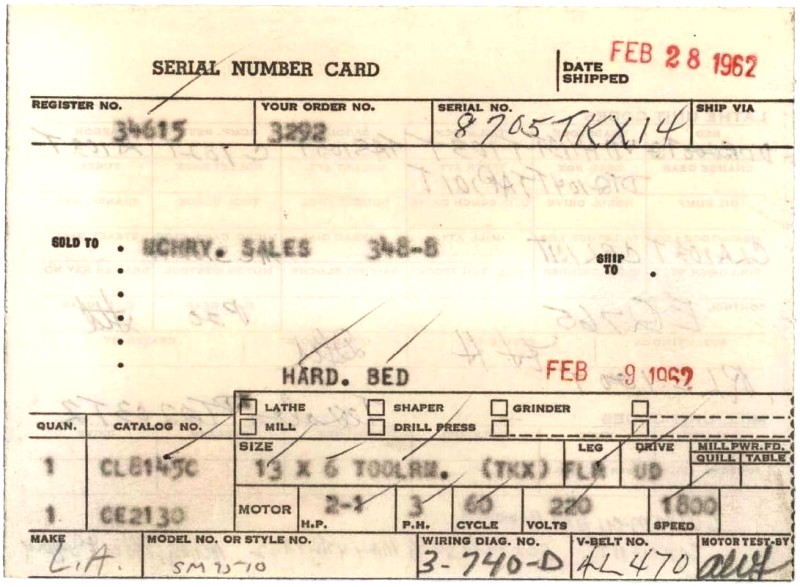 SERIAL NUMBER CARD
DATE SHIPPED FEB 28 1962
REGISTER NO. YOUR ORDER NO. SERIAL NO. SHIP VIA
34615 3292 8705TKX14
SOLD TO MCHRY. SALES 348-8 SHIP TO
HARD. BED FEB -9 1962
LATHE SHAPER GRINDER
QUAN. CATALOG NO. MILL DRILL PRESS
SIZE LEG DRIVE MILL PWR. FD.
QUILL TABLE
1 CL8145C 13 X 6 TOOLRM. (TKX) FLR UD
1 CE2130 MOTOR 2-1 3 60 220 1800
H.P. P.H. CYCLE VOLTS SPEED
MAKE MODEL NO. OR STYLE NO. WIRING DIAG. NO. V-BELT NO. MOTOR TEST-BY
L.A. 3-740-D AL470